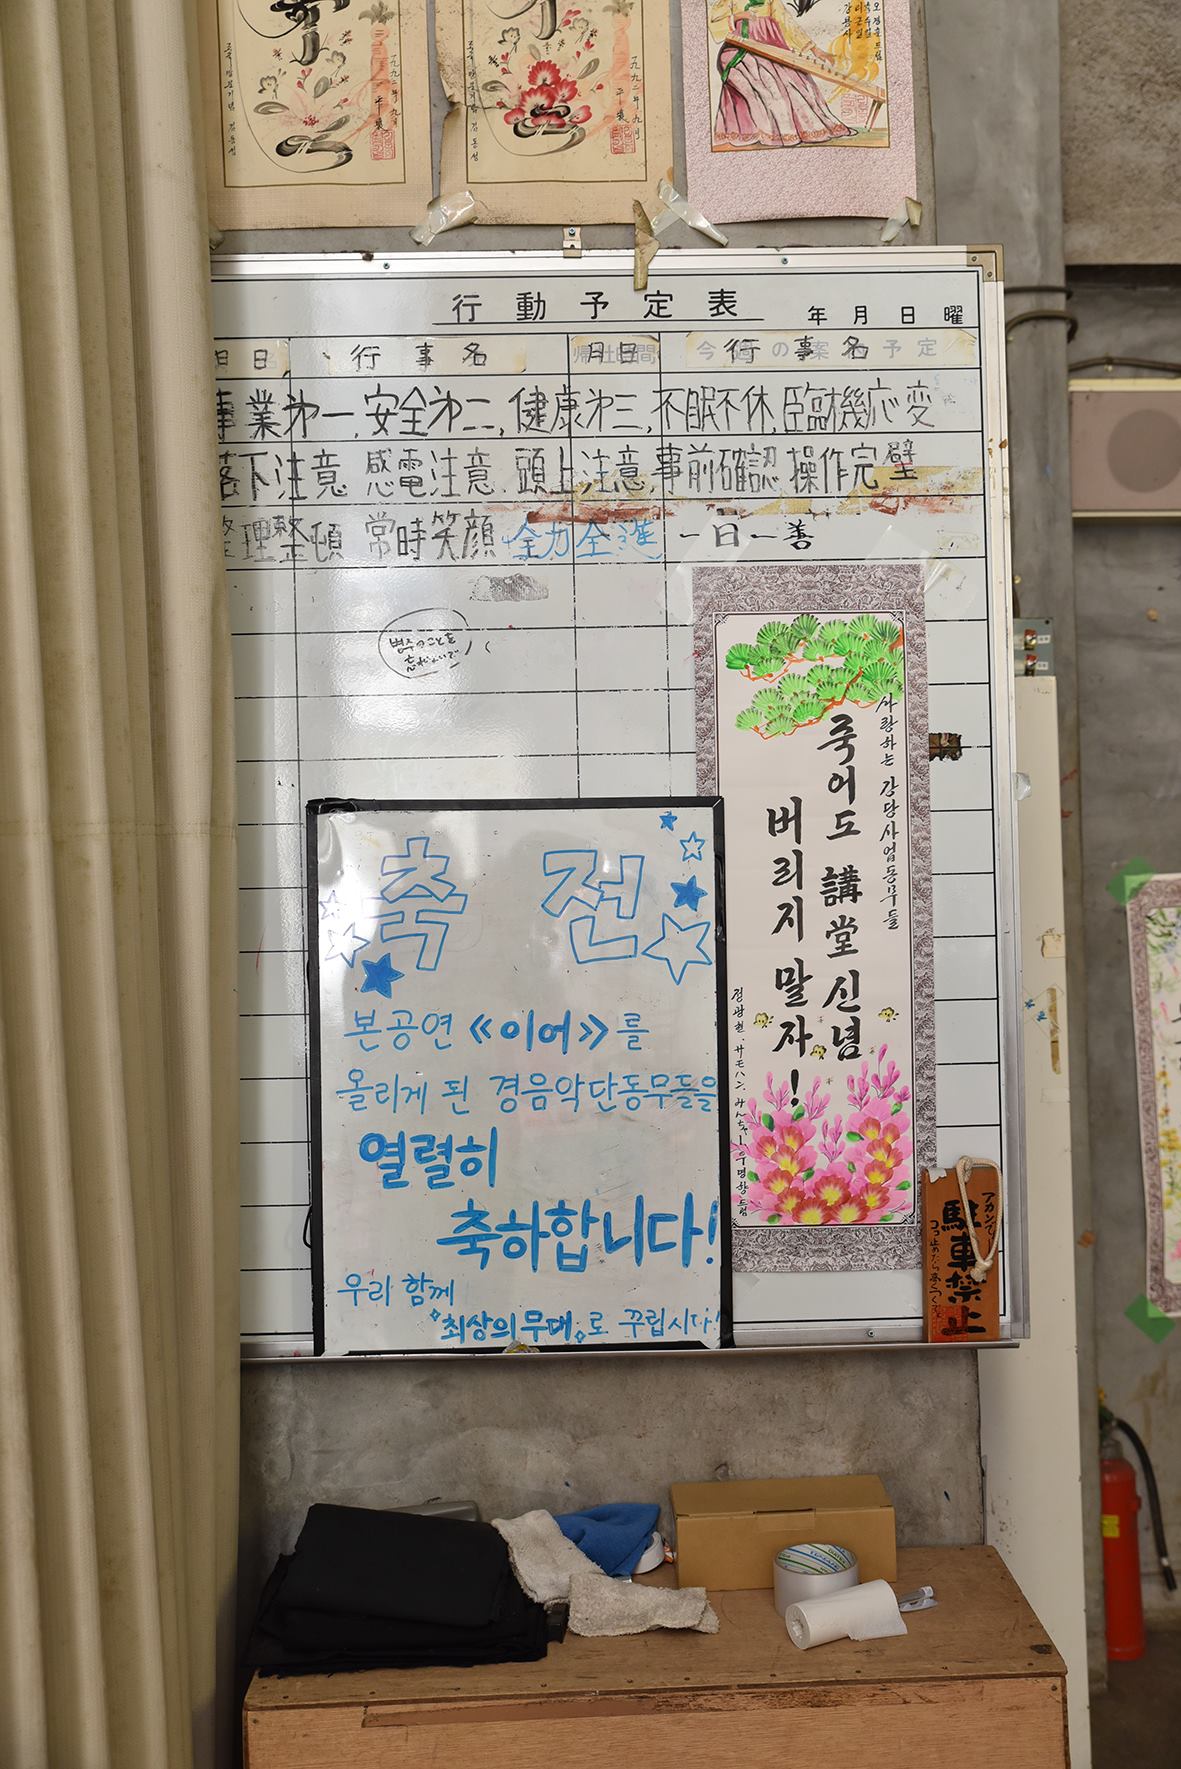 一九九二年九月
平壌
一九九二年九月
平壌
行動予定表
年 月 日 曜
月 日 行事名 月 日 行事名
事業第一,安全第二,健康第三,不眠不休,臨機応変
落下注意 感電注意 頭上注意 事前確認 操作完璧
整理整頓 常時笑顔 全力全進 一日一善
사랑하는 강당사업동무들
죽어도 講堂신념
버리지 말자!
축 전
본공연 《이어》를
올리게 된 경음악단동무들을
열렬히
축하합니다!
우리 함께
최상의 무대로 꾸립시다!
アカンでー
駐車禁止